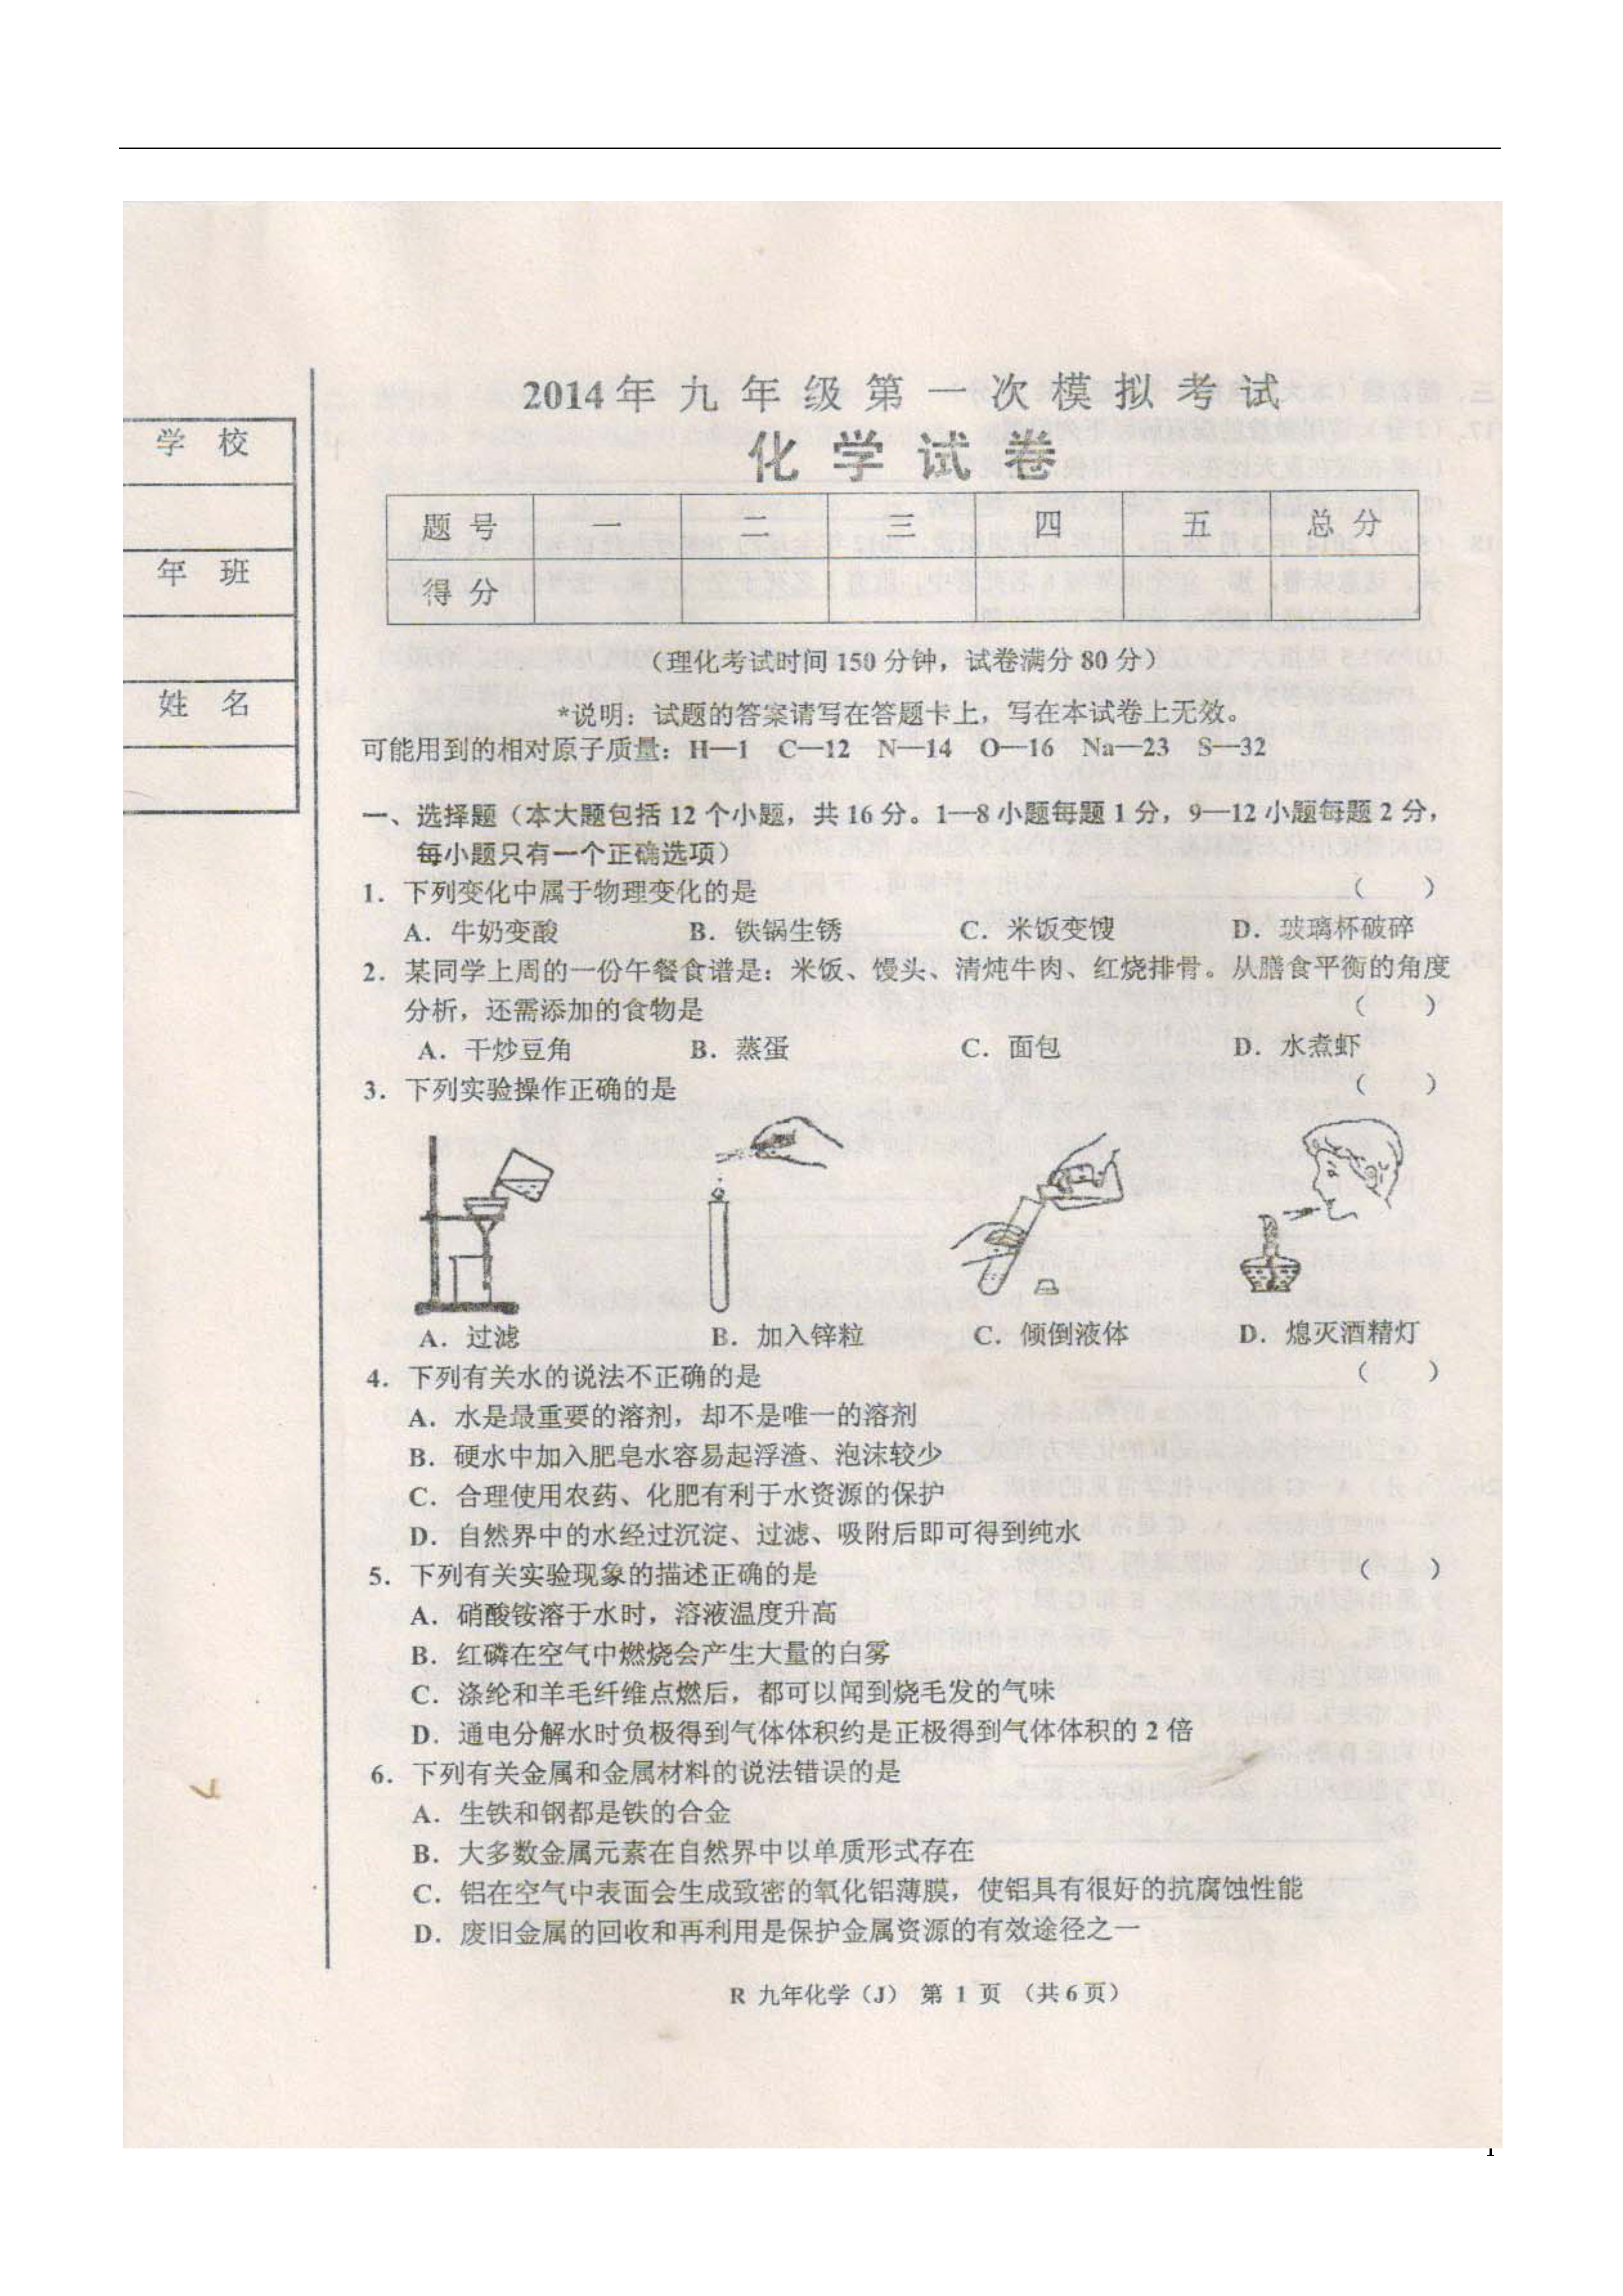 2014年九年级第一次模拟考试
化学试卷
学校
年班
姓名
题号 一 二 三 四 五 总分
得分
（理化考试时间150分钟，试卷满分80分）
*说明：试题的答案请写在答题卡上，写在本试卷上无效。
可能用到的相对原子质量：H—1 C—12 N—14 O—16 Na—23 S—32
一、选择题（本大题包括12个小题，共16分。1—8小题每题1分，9—12小题每题2分，
每小题只有一个正确选项）
1．下列变化中属于物理变化的是 （ ）
A．牛奶变酸 B．铁锅生锈 C．米饭变馊 D．玻璃杯破碎
2．某同学上周的一份午餐食谱是：米饭、馒头、清炖牛肉、红烧排骨。从膳食平衡的角度
分析，还需添加的食物是 （ ）
A．干炒豆角 B．蒸蛋 C．面包 D．水煮虾
3．下列实验操作正确的是 （ ）
A．过滤 B．加入锌粒 C．倾倒液体 D．熄灭酒精灯
4．下列有关水的说法不正确的是 （ ）
A．水是最重要的溶剂，却不是唯一的溶剂
B．硬水中加入肥皂水容易起浮渣、泡沫较少
C．合理使用农药、化肥有利于水资源的保护
D．自然界中的水经过沉淀、过滤、吸附后即可得到纯水
5．下列有关实验现象的描述正确的是 （ ）
A．硝酸铵溶于水时，溶液温度升高
B．红磷在空气中燃烧会产生大量的白雾
C．涤纶和羊毛纤维点燃后，都可以闻到烧毛发的气味
D．通电分解水时负极得到气体体积约是正极得到气体体积的2倍
6．下列有关金属和金属材料的说法错误的是
A．生铁和钢都是铁的合金
B．大多数金属元素在自然界中以单质形式存在
C．铝在空气中表面会生成致密的氧化铝薄膜，使铝具有很好的抗腐蚀性能
D．废旧金属的回收和再利用是保护金属资源的有效途径之一
R 九年化学（J） 第 1 页 （共6页）